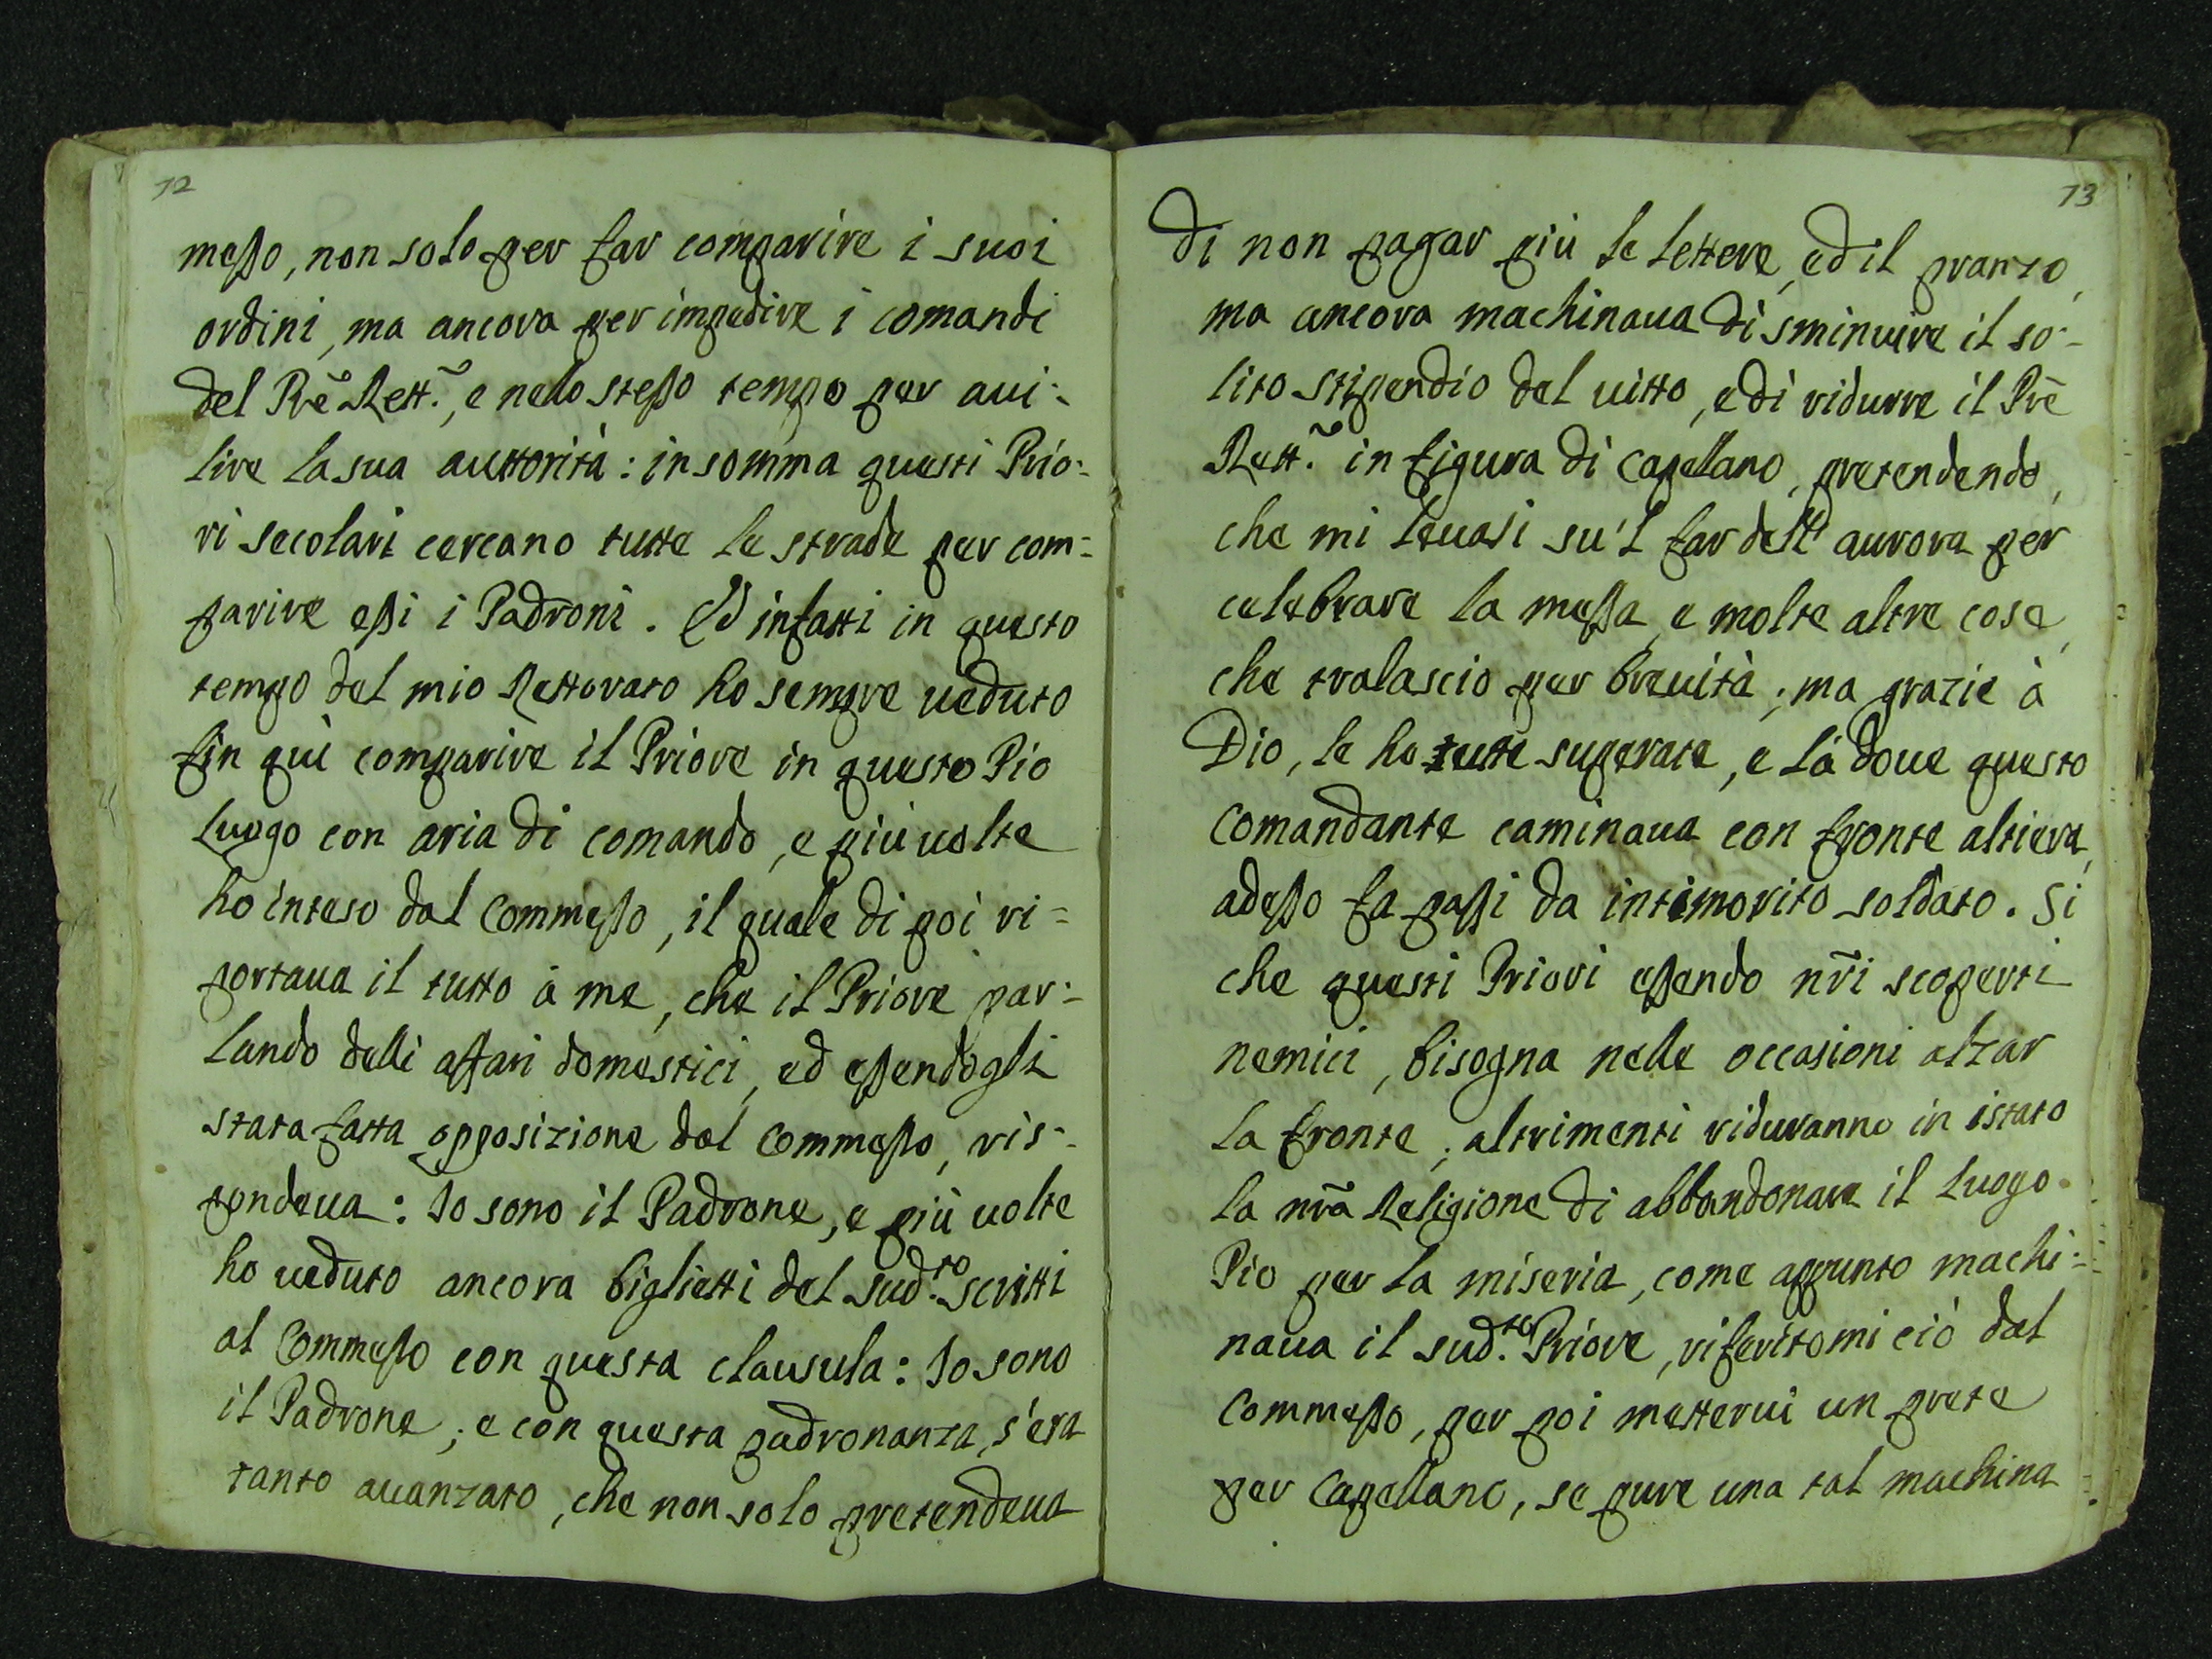 12
messo, non solo per far comparire i suoi
ordini, ma ancora per impedire i comandi
del Prẽ Rett.̃, e nelo stesso tempo per aui-
lire la sua auttorità: in somma questi Prio-
ri secolari cercano tutte le strade per com-
parire essi i Padroni. Ed infatti in questo
tempo del mio Rettorato ho sempre ueduto
fin quì comparire il Priore in questo Pio
Luogo con aria di comando, e più uolte
ho inteso dal Commesso, il quale di poi ri-
portaua il tutto à me, che il Priore par-
lando delli affari domestici, ed essendogli
stata fatta opposizione dal Commesso, ris-
pondeua: Io sono il Padrone, e più uolte
ho ueduto ancora biglietti del sud.to scritti
al Commesso con questa clausula: Io sono
il Padrone; e con questa padronanza, s'era
tanto auanzato, che non solo pretendeua
13
di non pagar più le lettere, ed il pranzo,
ma ancora machinaua di sminuire il so-
lito stipendio del uitto, e di ridurre il Prẽ
Rett.̃ in figura di Capellano, pretendendo,
che mi leuasi su'l far dell' aurora per
celebrare la messa, e molte altre cose,
che tralascio per breuità; ma grazie à
Dio, le ho tutte superate, e là doue questo
Comandante caminaua con fronte altiera,
adesso fa passi da intimorito soldato. Si
che questi Priori essendo nr̃i scoperti
nemici, bisogna nelle occasioni alzar
la fronte; altrimenti riduranno in istato
la nr̃a Religione di abbandonare il Luogo
Pio per la miseria, come appunto machi-
naua il sud.to Priore, riferitomi ciò dal
Commesso, per poi metterui un prete
per Capellano, se pure una tal machina